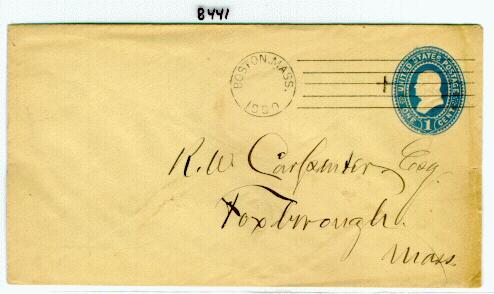 B441
BOSTON, MASS.
1890
UNITED STATES POSTAGE
ONE 1 CENT
R. W. Carpenter, Esq.
Foxborough.
Mass.